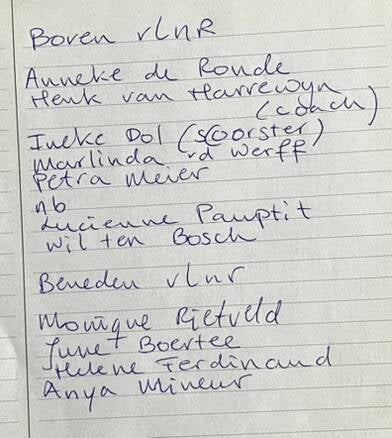 Boven vlnR
Anneke de Ronde
Henk van Harrewyn
(coach)
Ineke Dol (scoorster)
Marlinda vd Werff
Petra Meier
nb
Lucienne Pauptit
Wil ten Bosch
Beneden vlnr
Monique Rietveld
Junet Boertee
Helene Ferdinand
Anya Mineur